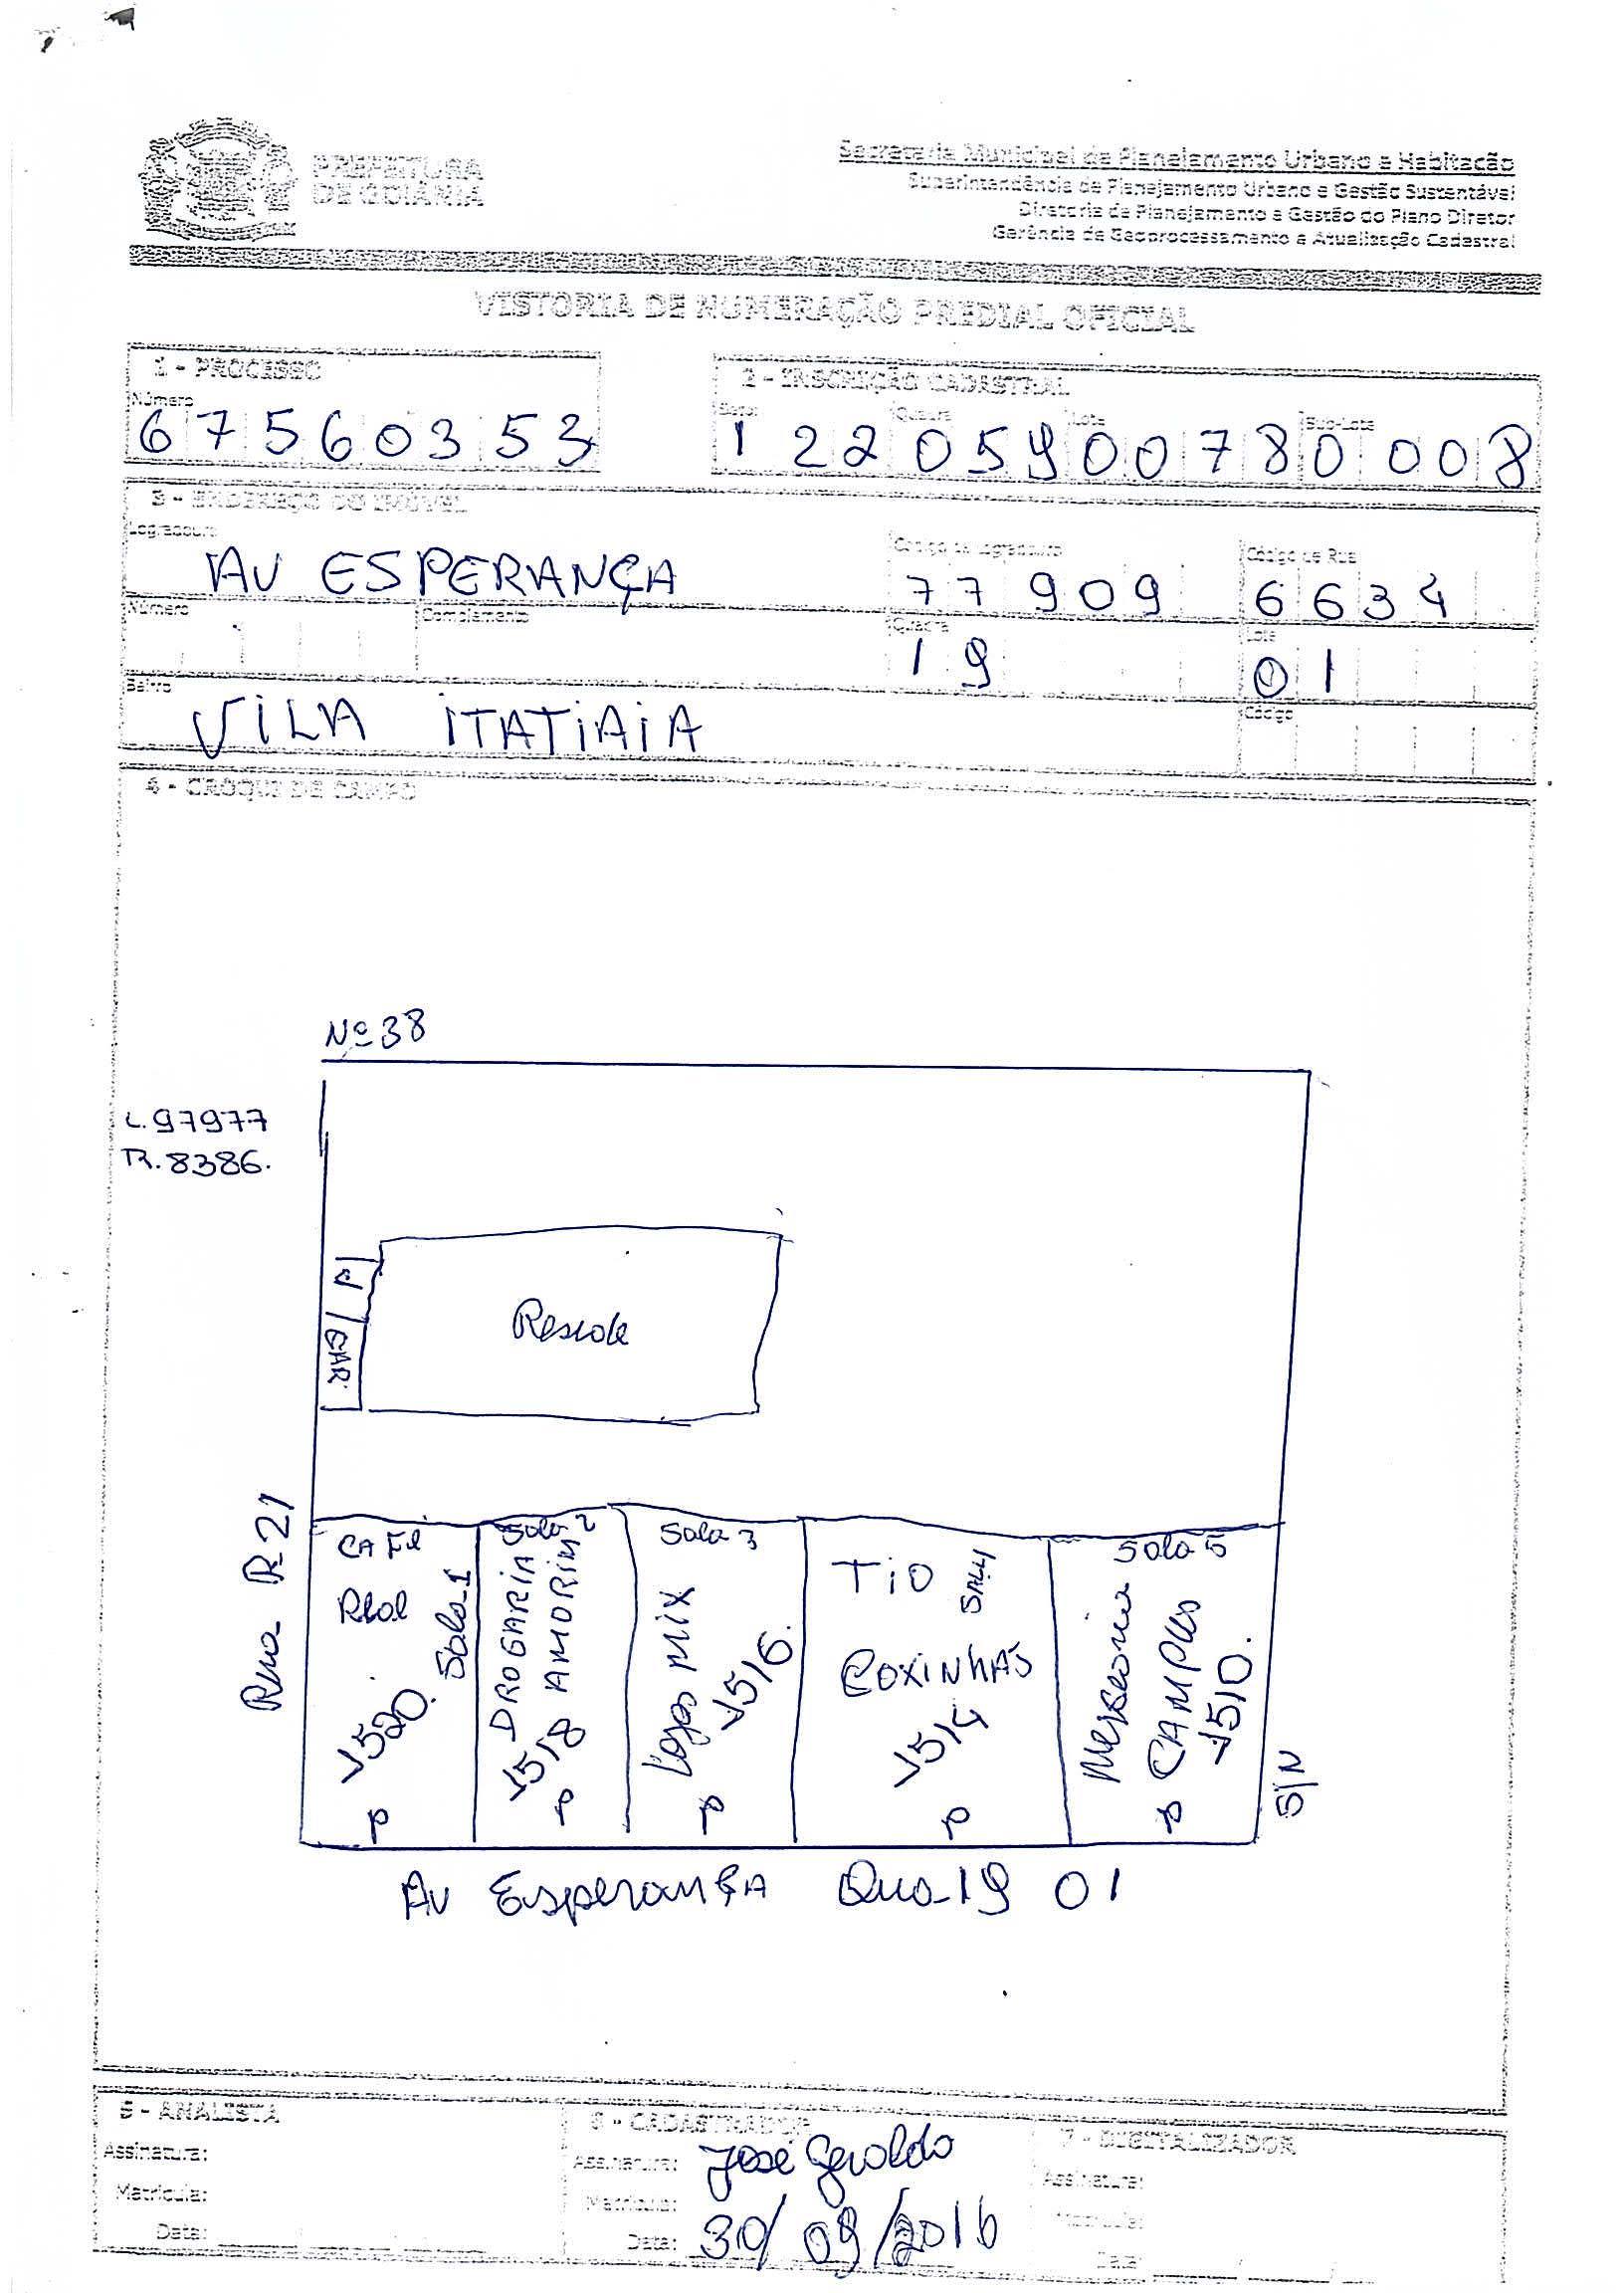 PREFEITURA
DE GOIÂNIA
Secretaria Municipal de Planejamento Urbano e Habitação
Superintendência de Planejamento Urbano e Gestão Sustentável
Diretoria de Planejamento e Gestão do Plano Diretor
Gerência de Geoprocessamento e Atualização Cadastral
VISTORIA DE NUMERAÇÃO PREDIAL OFICIAL
1 - PROCESSO
Número
67560353
2 - INSCRIÇÃO CADASTRAL
Setor Quadra Lote Sub-Lote
1 2 2 0 5 9 0 0 7 8 0 0 0 8
3 - ENDEREÇO DO IMÓVEL
Logradouro Código de Logradouro Código de Rua
AV ESPERANÇA 77909 6634
Número Complemento Quadra Lote
19 01
Bairro Código
VILA ITATIAIA
4 - CROQUI DE CAMPO
Nº 38
L. 97977
R. 8386.
P
GAR.
Rua R-21
CAFÉ
Real
Sala-1
√520.
P
Sala 2
DROGARIA
AMORIM
√518
P
Sala 3
Lojas MIX
√516.
P
TIO
SALA 4
COXINHAS
√514
P
Sala 5
CAMPUS
√510.
P
S/N
AV EsperançA Qua-19 01
5 - ANALISTA
Assinatura:
Matrícula:
Data:
6 - CADASTRADOR
Assinatura: José Geraldo
Matrícula:
Data: 30/09/2016
7 - DIGITALIZADOR
Assinatura:
Matrícula:
Data: